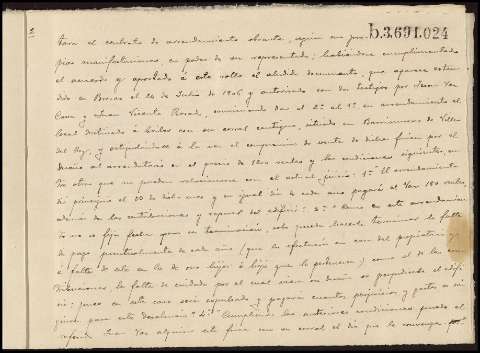 2
b.3.691.024
tara el contrato de arrendamiento obrante, según en
pias manifestaciones, en poder de su representada; habiéndose cumplimentado
el acuerdo y aportado á este rollo el aludido documento, que aparece exten
dido en Brozas el 20 de Julio de 1906 y autorizado con dos testigos por Juan Vaz
y Juan Vicente Rosado, conviniendo dar el 2º al 1º en arrendamiento el
local destinado á bailes con su corral contiguo, sitiado en Barrionuevo de Villa
del Rey, y estipulándose á la vez el compromiso de venta de dicha finca por el
dueño al arrendatario en el precio de 1200 reales y las condiciones siguientes, en
tre otras que no pueden relacionarse con el actual juicio: 1ª El arrendamiento
da principio el 20 de dicho mes y en igual día de cada año pagará el Vaz 180 reales
además de las contribuciones y reparos del edificio: 2ª Como en este arrendamien
to no se fija fecha para su terminación, solo puede hacerle terminar la falta
de pago puntualmente de cada año (que se efectuará en casa del propietario y
á falta de este en la de sus hijos ó hijo que le pertenezca) como el de las con
tribuciones la falta de cuidado por el cual viese su dueño se perjudicaba el edifi
cio: pues en este caso será expulsado y pagará cuantos perjuicios y gastos se ori
ginen para esta devolución 4ª Cumplidas las anteriores condiciones puede el
referido Juan Vaz adquirir esta finca con su corral el día que le convenga por